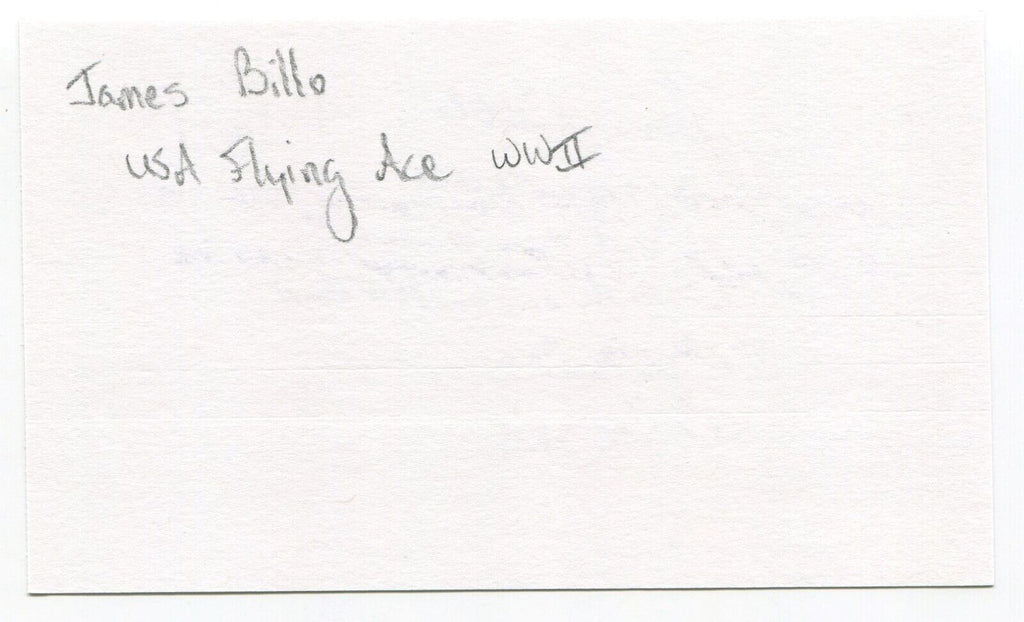 James Billo
USA Flying Ace WWII